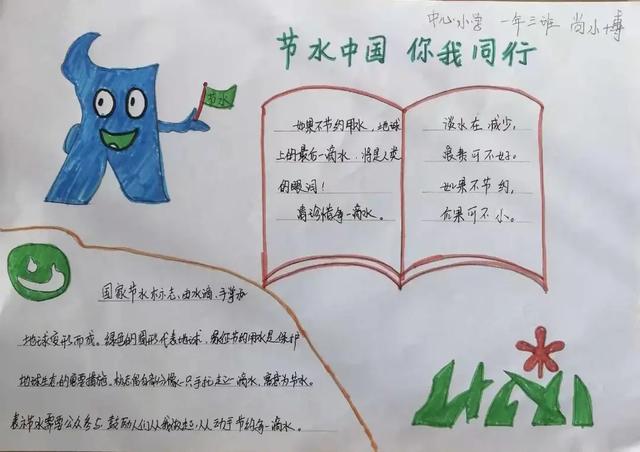 中心小学 一年三班 尚小博
节水中国 你我同行
节水
如果不节约用水，地球
上的最后一滴水，将是人类
的眼泪！
请珍惜每一滴水。
淡水在减少，
浪费可不好。
如果不节约，
后果可不小。
国家节水标志，由水滴、手掌和
地球变形而成。绿色的圆形代表地球，象征节约用水是保护
地球生态的重要措施。标志留白部分像一只手托起一滴水，寓意为节水。
表示节水需要公众参与，鼓励人们从我做起，从动手节约每一滴水。